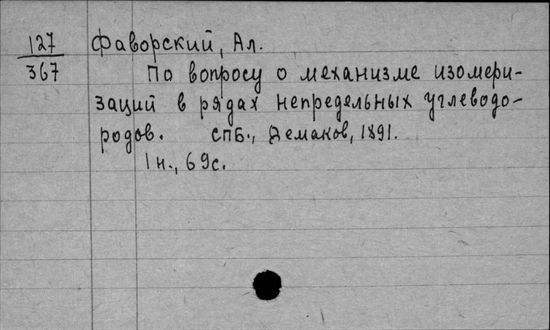 127 Фаворский, Ал.
367 По вопросу о механизме изомери-
заций в рядах непредельных углеводо-
родов. СПБ., Демаков, 1891.
1н., 69с.